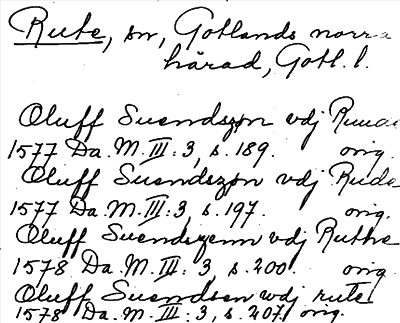 Rute, sn, Gotlands norra
härad, Gotl. l.
Oluff Suendszøn vdj Ruuae
1577 Da. M. III: 3, s. 189. orig.
Oluff Suendszøn vdj Rude
1577 Da. M. III: 3, s. 197. orig.
Oluff Suendszenn vdj Ruthe
1578 Da. M. III: 3, s. 200. orig.
Oluff Suendsen wdj rute
1578 Da. M. III: 3, s. 207. orig.